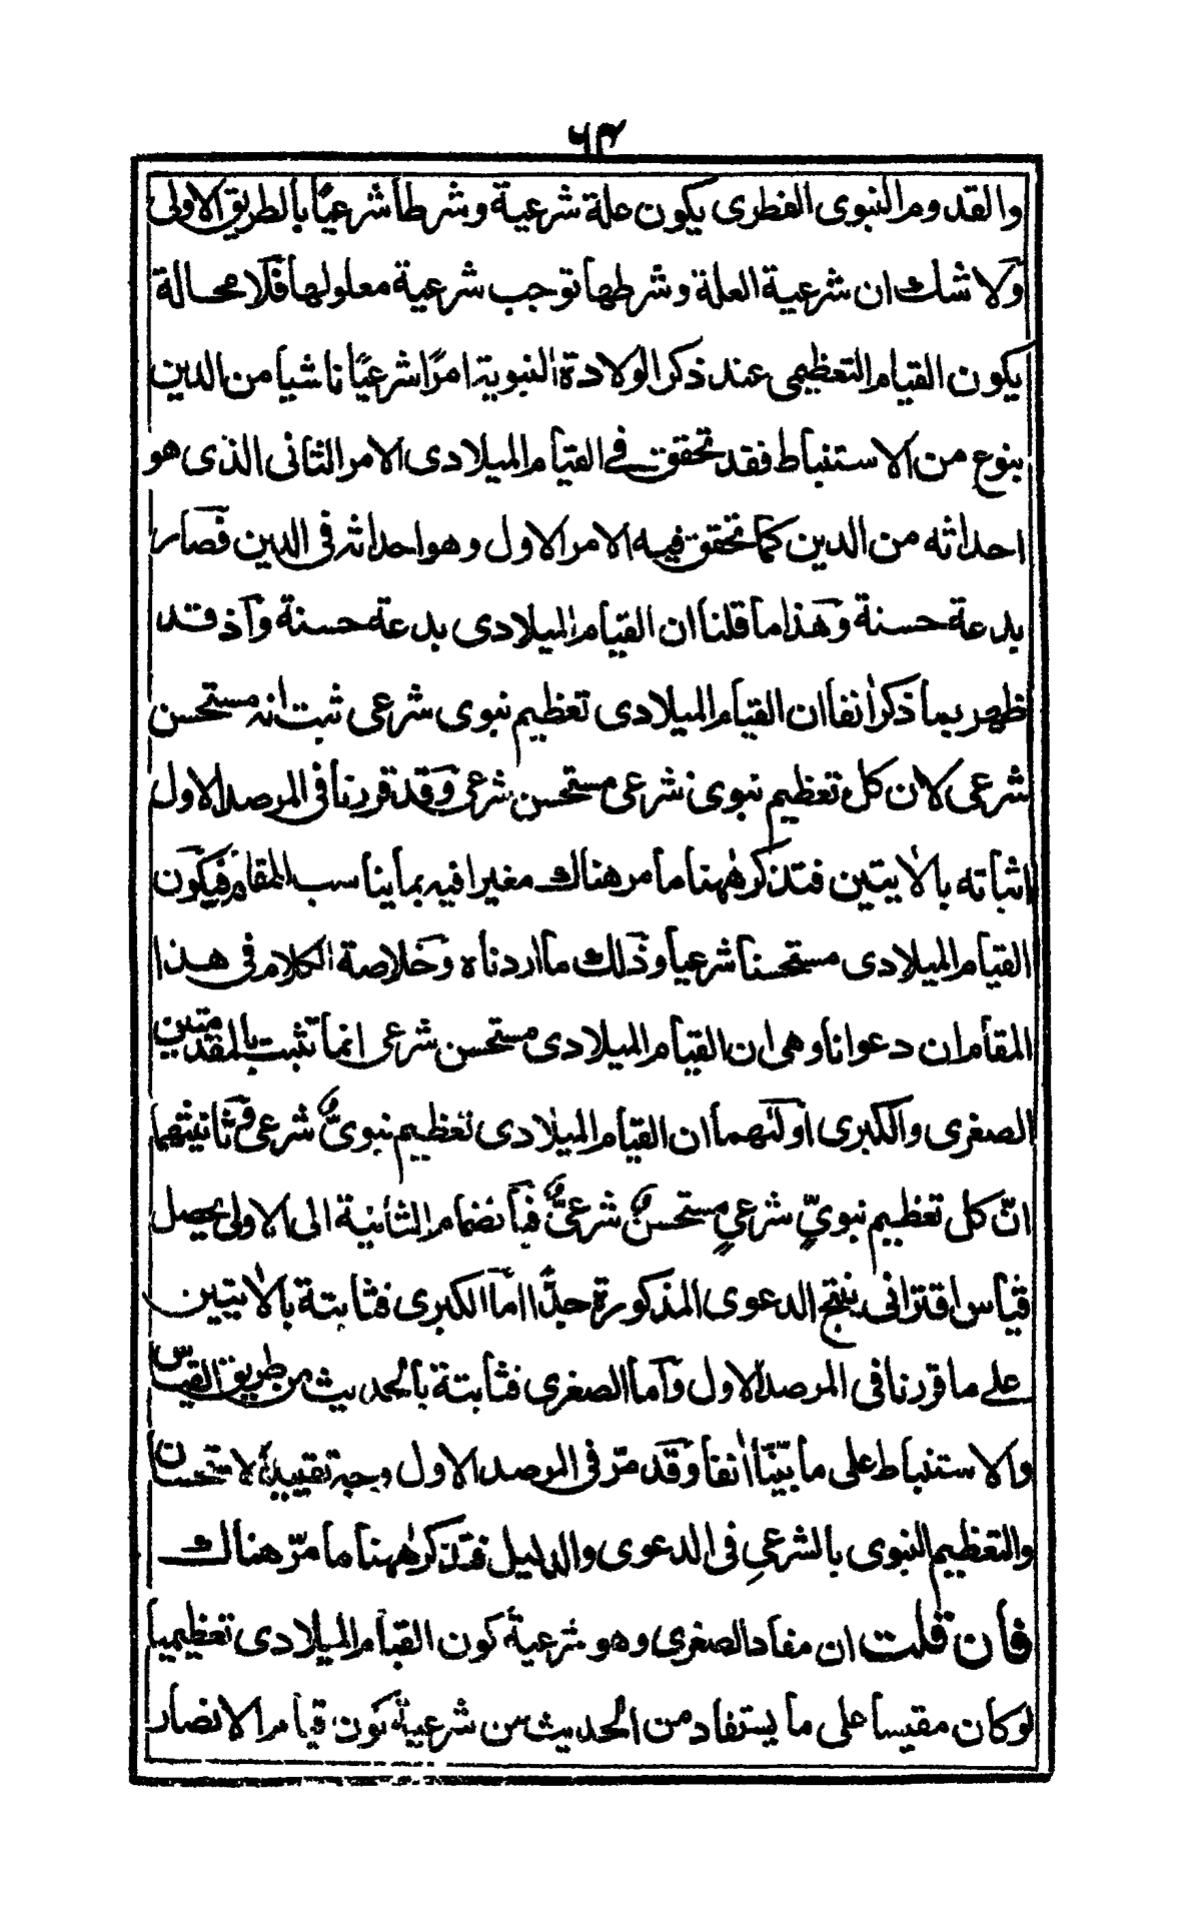 ٦٣
والقدوم النبوى الفطرى يكون علة شرعية وشرطا شرعيًا بالطريق الاولى
ولا شك ان شرعية العلة وشرطها توجب شرعية معلولها فلا محالة
يكون القيام التعظيمى عند ذكر الولادة النبوية امرًا شرعيًا ناشيا من الدين
بنوع من الاستنباط فقد تحقق فى القيام الميلادى الامر الثانى الذى هو
احداثه من الدين كما تحقق فيه الامر الاول وهو احداثه فى الدين فصار
بدعة حسنة وهذا ما قلنا ان القيام الميلادى بدعة حسنة وآذ قد
ظهر بما ذكر اٰنفا ان القيام الميلادى تعظيم نبوى شرعى ثبت انه مستحسن
شرعى لان كل تعظيم نبوى شرعى مستحسن شرعى وقد قررنا فى المرصد الاول
اثباته بالاٰيتين فتذكر هٰهنا ما مر هناك مغيرا فيه بما يناسب المقام فيكون
القيام الميلادى مستحسنا شرعيا وذلك ما اردناه وخلاصة الكلام فى هذا
المقام ان دعوانا وهى ان القيام الميلادى مستحسن شرعى انما تثبت بالمقدمتين
الصغرى والكبرى اولٰهما ان القيام الميلادى تعظيم نبوىٌّ شرعى وثانيتهما
انّ كل تعظيم نبوىٍّ شرعىٍ مستحسنٌ شرعىٌّ فبانضمام الثانية الى الاولى يحصل
قياس اقترانى ينتج الدعوى المذكورة جدًّا امّا الكبرى فثابتة بالاٰيتين
على ما قررنا فى المرصد الاول وآما الصغرى فثابتة بالحديث من طريق القياس
والاستنباط على ما بيّنّا اٰنفا وقد مرّ فى المرصد الاول وجه تقييد الاستحسان
والتعظيم النبوى بالشرعىِ فى الدعوى والدليل فتذكر هٰهنا ما مرّ هناك
فان قلت ان مفاد الصغرى وهو شرعية كون القيام الميلادى تعظيميا
لو كان مقيسا على ما يستفاد من الحديث من شرعية كون قيام الانصار